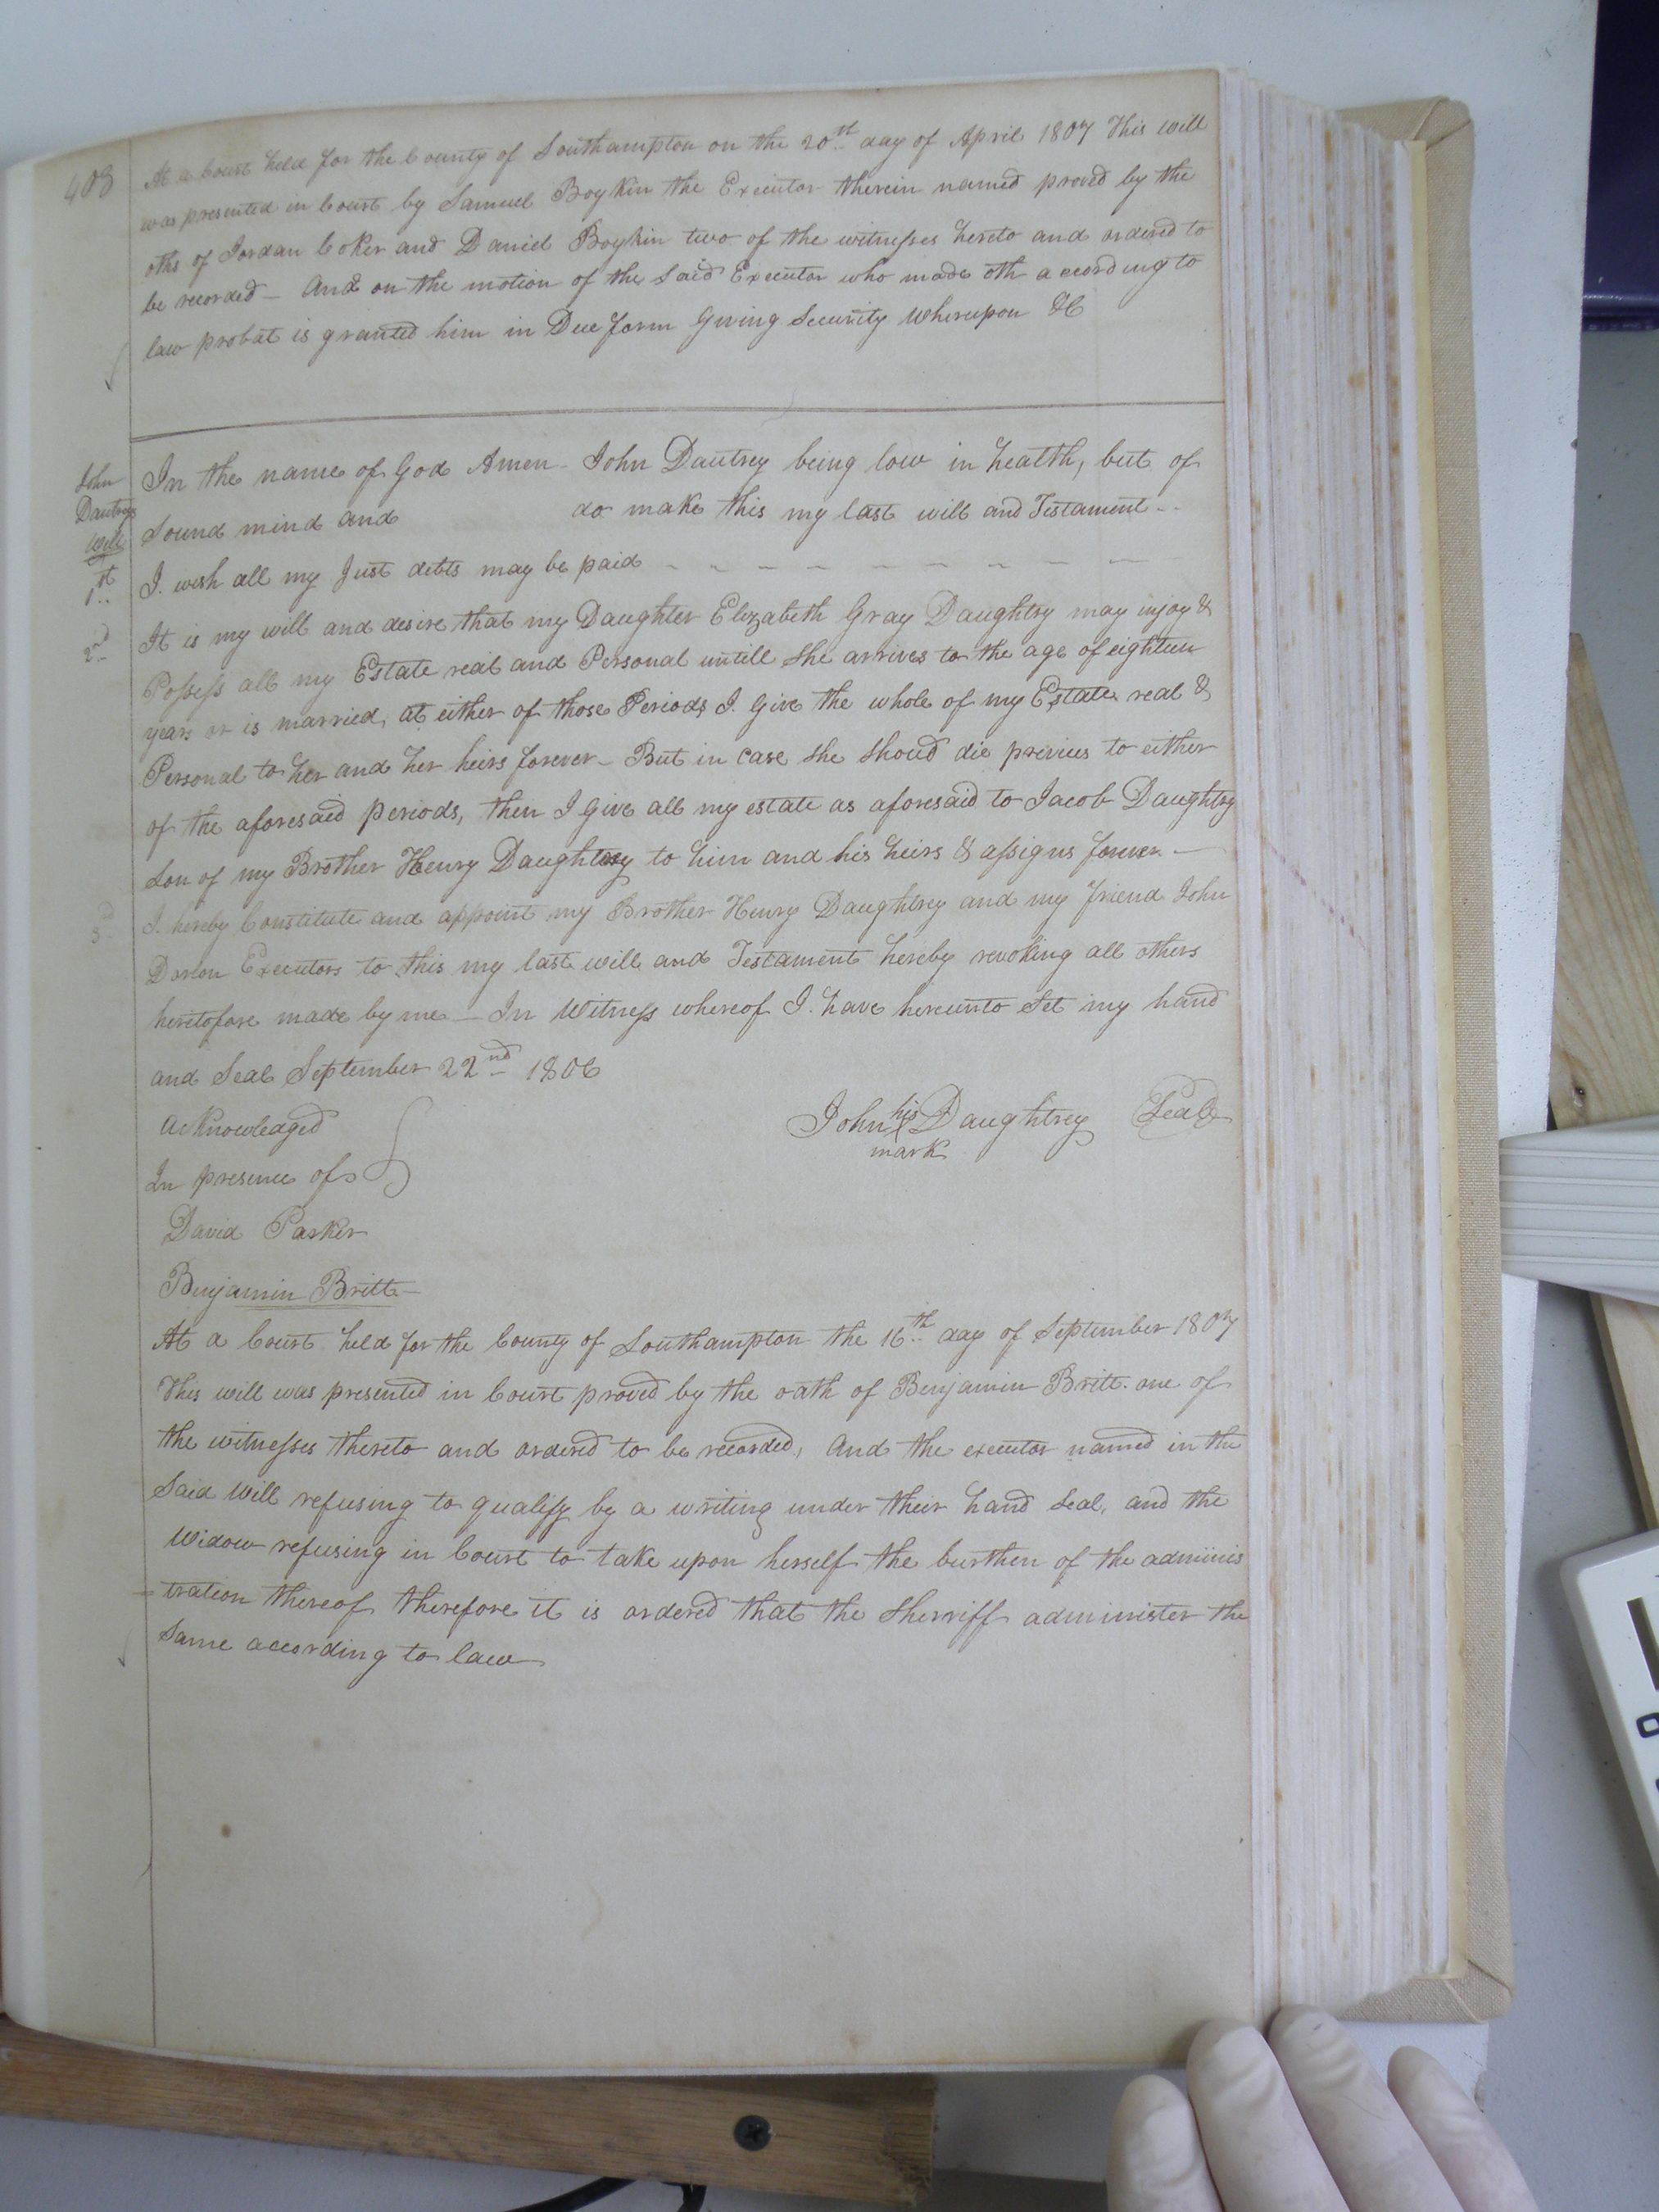 403
At a Court held for the County of Southampton on the 20th day of April 1807 This will
was presented in Court by Samuel Boykin the Executor therein named proved by the
oths of Jordan Coker and Daniel Boykin two of the witnesses hereto and ordered to
be recorded - And on the motion of the said Executor who made oth according to
law probat is granted him in Due form Giving Security Whereupon &C
John
Dautreys
Will
In the name of God Amen - John Dautrey being low in health, but of
Sound mind and do make this my last will and Testament -
1st I wish all my Just debts may be paid
2nd It is my will and desire that my Daughter Elizabeth Gray Daughtry may injoy &
Possess all my Estate real and Personal untill she arrives to the age of eighteen
years or is married, at either of those Periods I Give the whole of my Estate real &
Personal to her and her heirs forever - But in case she shoud die previus to either
of the aforesaid periods, then I Give all my estate as aforesaid to Jacob Daughtry
Son of my Brother Henry Daughtrey to him and his heirs & assigns forever -
3d I hereby Constitute and appoint my Brother Henry Daughtrey and my friend John
Executors to this my last will and Testament hereby revoking all others
heretofore made by me - In Witness whereof I have hereunto Set my hand
and Seal September 22nd 1806
Acknowledged
In presence of
John his Daughtrey Seal
mark
David Parker
Benjamin Britt
At a Court held for the County of Southampton the 16th day of September 1807
This will was presented in Court proved by the oath of Benjamin Britt one of
the witnesses thereto and ordered to be recorded, And the executor named in the
Said Will refusing to qualify by a writing under their hand Seal, and the
Widow refusing in Court to take upon herself the burthen of the adminis
-tration thereof therefore it is ordered that the Sherriff administer the
Same according to law